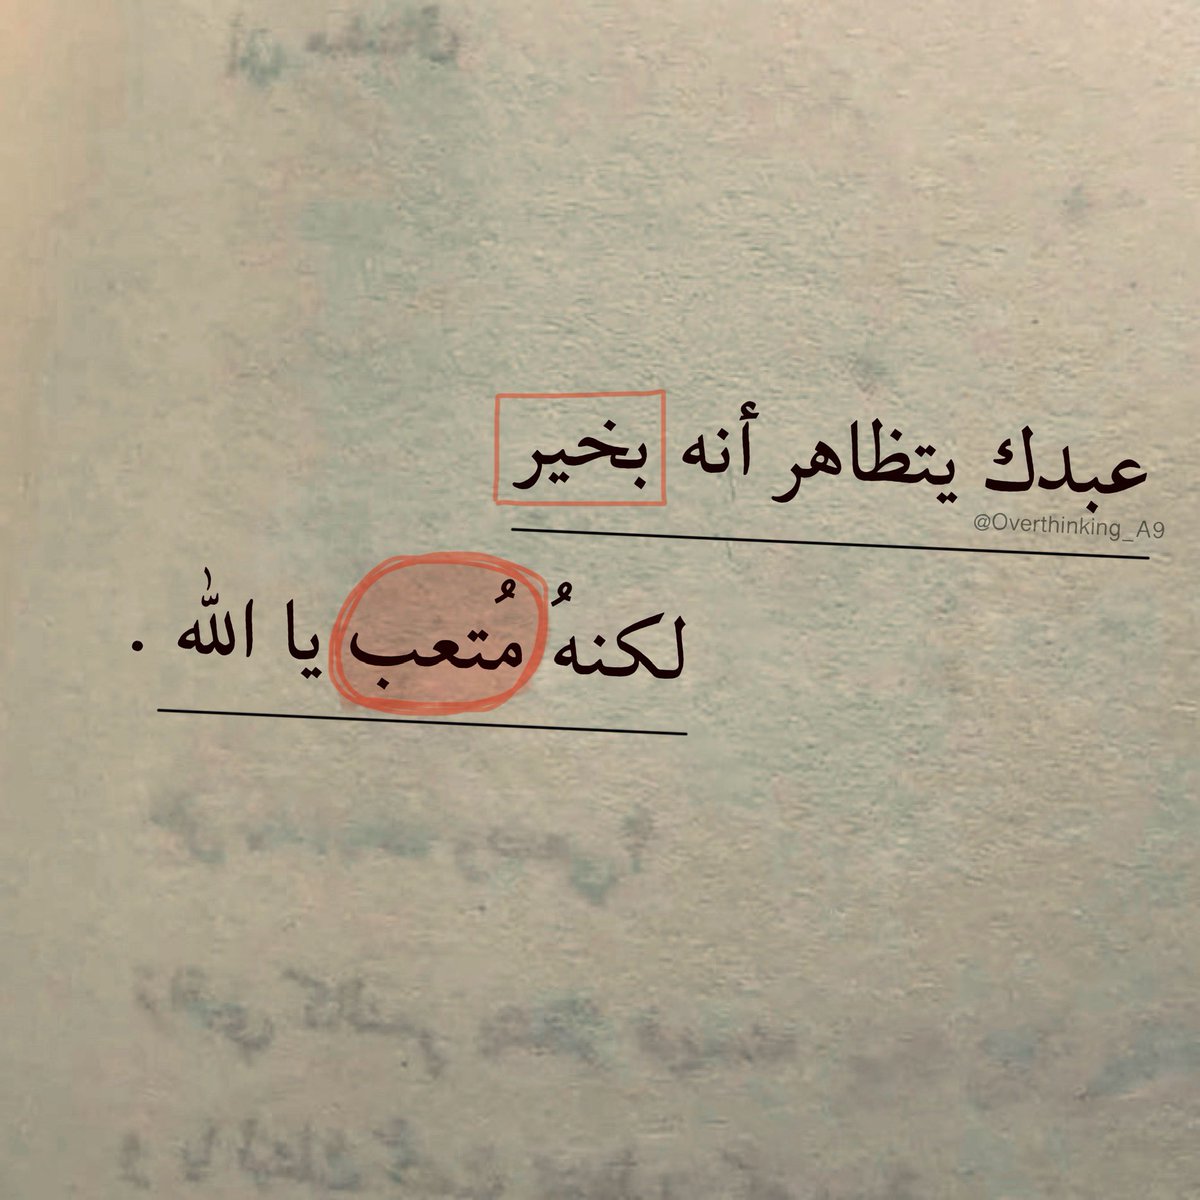 عبدك يتظاهر أنه بخير
@Overthinking_A9
لكنهُ مُتعب يا الله .